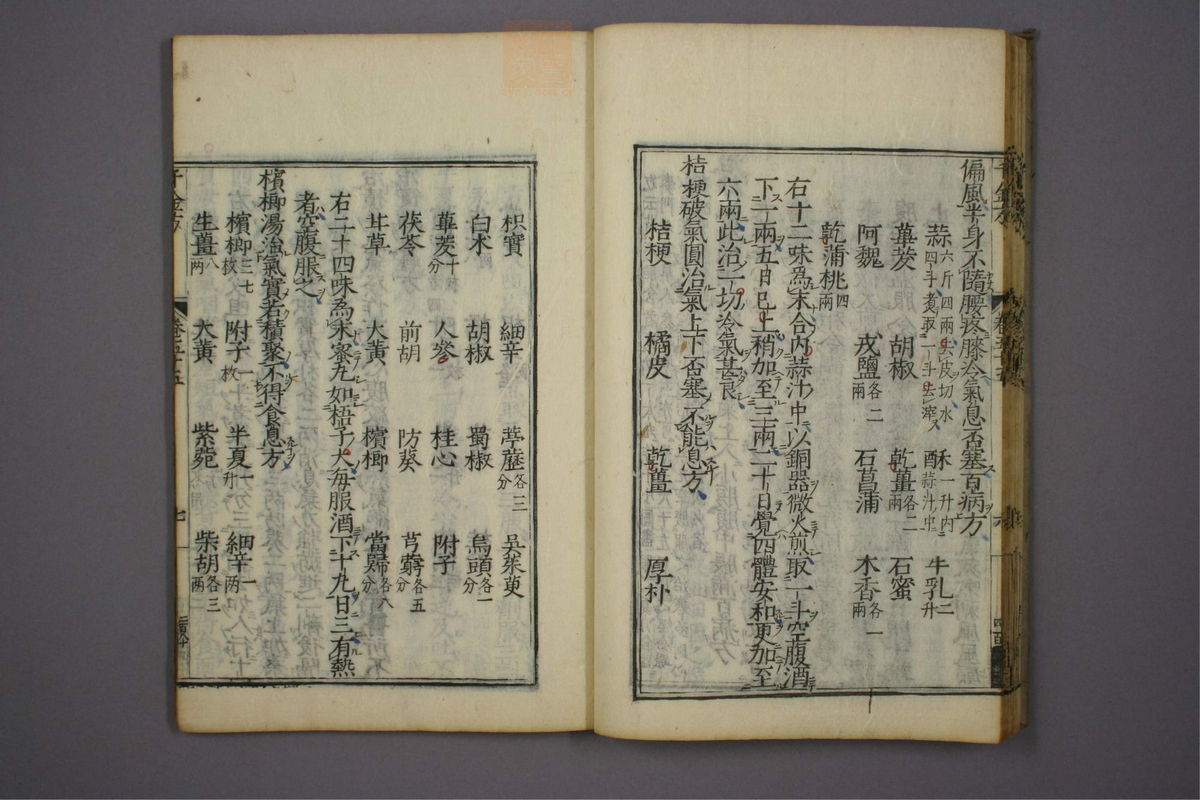 偏風半身不隨腰疼膝冷氣息否塞百病方
蒜六斤四兩去皮切水四斗煑取一斗去滓 酥一升内蒜汁中 牛乳二升
蓽茇 胡椒 乾薑各二兩 石蜜
阿魏 戎鹽各二兩 石菖蒲 木香各一兩
乾蒲桃四兩
右十二味為末合内蒜汁中以銅器微火煎取一斗空腹酒
下一兩五日已上稍加至三兩二十日覺四體安和更加至
六兩此治一切冷氣甚良
桔梗破氣圓治氣上下否塞不能息方
桔梗 橘皮 乾薑 厚朴
枳實 細辛 葶藶各三分 吳茱萸
白术 胡椒 蜀椒 烏頭各一
蓽茇十分 人參 桂心 附子
茯苓 前胡 防葵 芎藭各五分
甘草 大黃 檳榔 當歸各八分
右二十四味為末蜜丸如梧子大每服酒下十九日三有熱
者空腹服之
檳榔湯治氣實若積聚不得食息方
檳榔三七枚 附子一枚 半夏一升 細辛一兩
生薑八兩 大黃 紫菀 柴胡各三兩
千金方
卷五十五
七